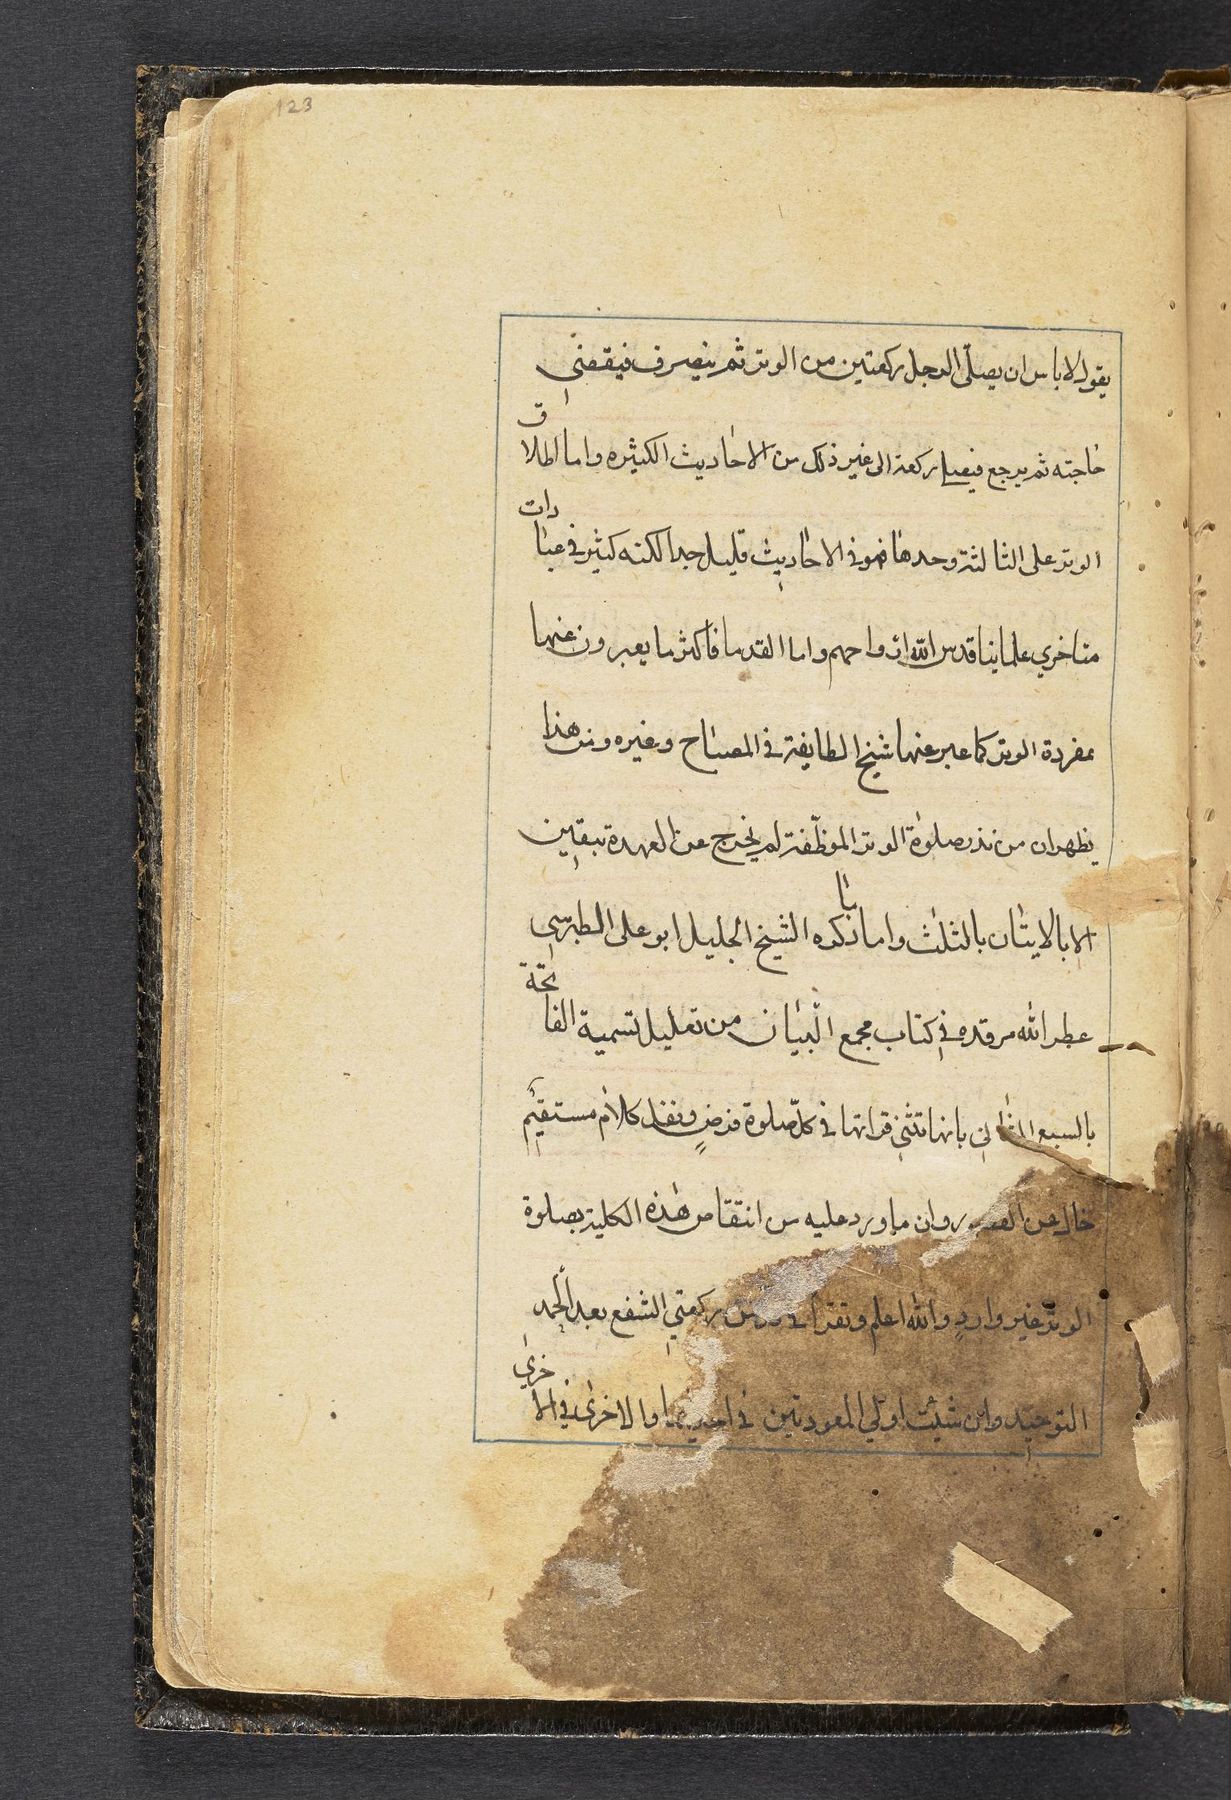 123
يقول لا باس ان يصلّى الرجل ركعتين من الوتر ثم ينصرف فيقضي
حاجته ثم يرجع فيصلى ركعة الى غير ذلك من الاحاديث الكثيره واما اطلاق
الوتر على الثالثة وحدها فهو في الاحاديث قليل جدا لكنه كثير في عبادات
متاخري علماينا قدس الله ارواحهم واما القدما فاكثر ما يعبرون عنها
بمفردة الوتر كما عبر عنها شيخ الطايفة في المصباح وغيره ومن هذا
يظهر ان من نذر صلوة الوتر الموظّفة لم يخرج عن العهدة بيقين
الا بالايتان بالثلث واما ما ذكره الشيخ الجليل ابو على الطبرسي
عطر الله مرقده في كتاب مجمع البيان من تعليل تسمية الفاتحة
بالسبع المثاني بانها تثني قراتها في كلّ صلوة فرضٍ ونفل كلام مستقيم
خال عن القصور وان ما ورد عليه من انتقاص هذه الكلية بصلوة
الوتر غير واردٍ والله اعلم وتقرا في ركعتي الشفع بعد الحمد
التوحيد وان شيت اولي المعوذتين في احديهما والاخرى في الاخري